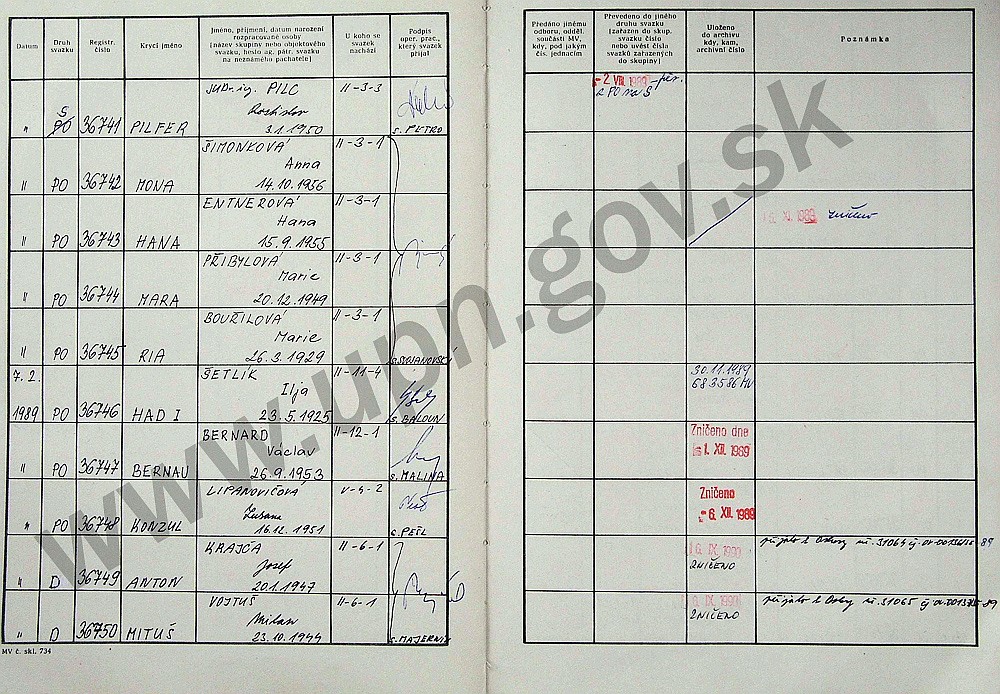 Datum
Druh
svazku
Registr.
číslo
Krycí jméno
Jméno, příjmení, datum narození
rozpracované osoby
(název skupiny nebo objektového
svazku, heslo ag. pátr. svazku
na neznámého pachatele)
U koho se
svazek
nachází
Podpis
oper. prac.,
který svazek
přijal
Předáno jinému
odboru, odděl.
součásti MV,
kdy, pod jakým
čís. jednacím
Převedeno do jiného
druhu svazku
(zařazen do skup.
svazku číslo
nebo uvést čísla
svazků zařazených
do skupiny)
Uloženo
do archivu
kdy, kam,
archivní číslo
Poznámka
JUDr. ing. PILC II-3-3
S Rostislav
" PO 36741 PILFER 3.1.1950 s. PETRO
-2 VIII. 1989 per.
z PO na S
ŠIMONKOVÁ II-3-1
Anna
" PO 36742 MONA 14.10.1956
ENTNEROVÁ II-3-1
Hana
" PO 36743 HANA 15.9.1955
XI. 1989 zničeno
PŘIBYLOVÁ II-3-1
Marie
" PO 36744 MARA 20.12.1949
BOUŘILOVÁ II-3-1
Marie
" PO 36745 RIA 26.3.1929 s. STOJANOVSKÍ
7.2. ŠETLÍK II-11-4
Ilja
1989 PO 36746 HAD I 23.5.1925 s. BALOUN
30.11.1989
683586 MV
BERNARD II-12-1
Václav
" PO 36747 BERNAU 26.9.1953 s. MALINA
Zničeno dne
-1. XII. 1989
LIPANOVIČOVÁ V-4-2
Zuzana
" PO 36748 KONZUL 16.12.1951 s. PEŠL
Zničeno
-6. XII. 1989
KRAJČA II-6-1
Josef
" D 36749 ANTON 20.1.1947
IX. 1990
ZNIČENO
č. 31064
VOJTUŠ II-6-1
Milan
" D 36750 MITUŠ 23.10.1944 s. MAJERNÍK
IX. 1990
ZNIČENO
č. 31065
MV č. skl. 734
www.upn.gov.sk